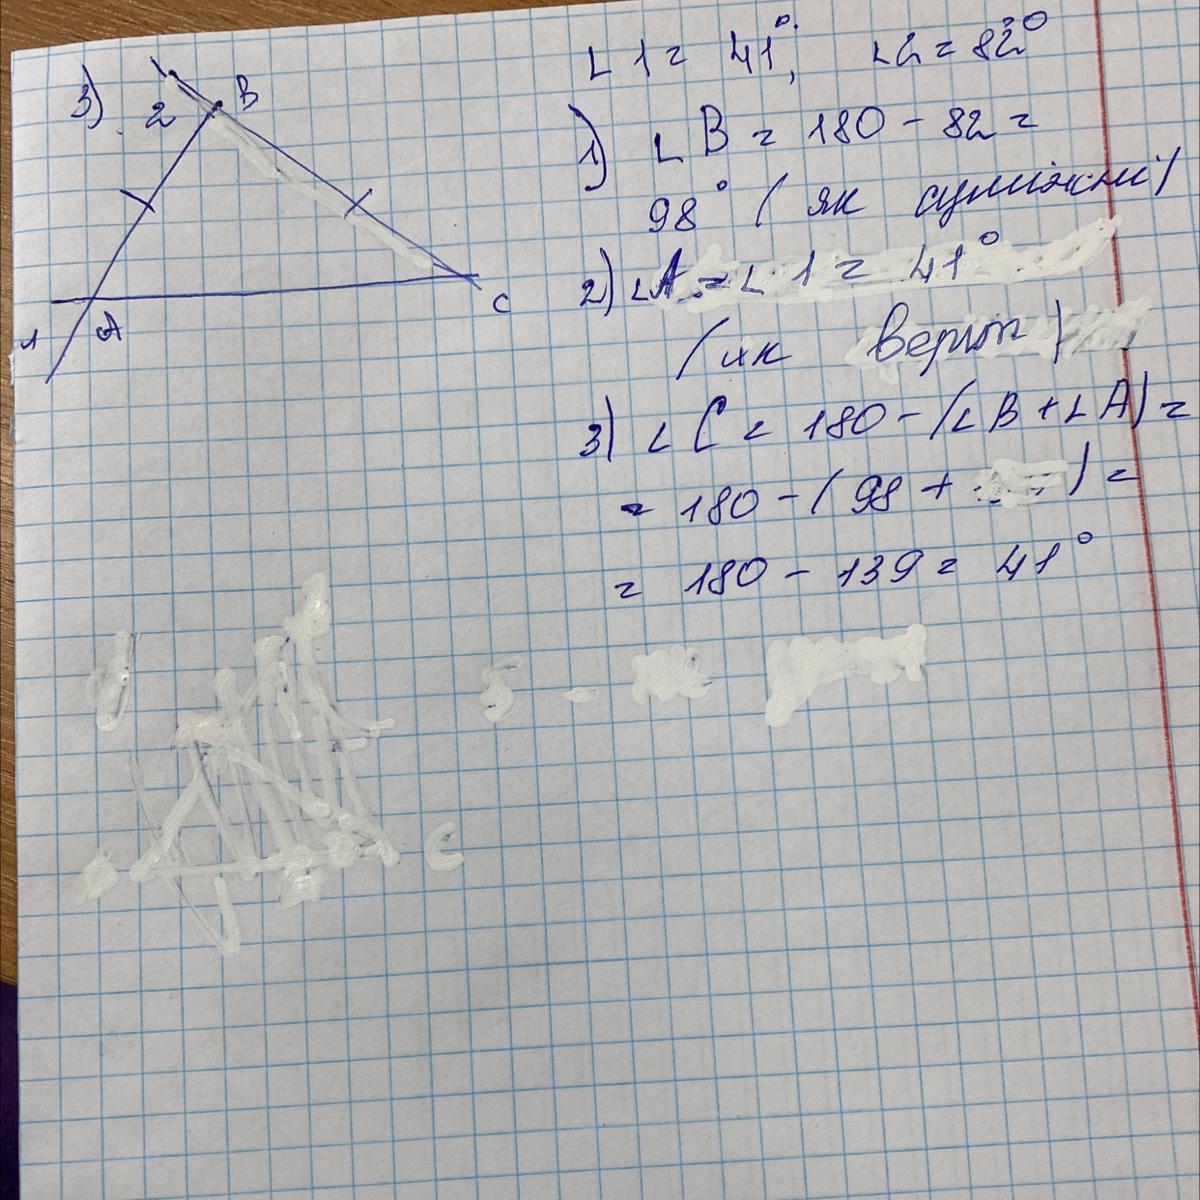 3)
2
B
1
A
C
∠1 = 41°; ∠2 = 82°
1) ∠B = 180 - 82 =
98° (як суміжні)
2) ∠A = ∠1 = 41°
(як верт)
3) ∠C = 180 - (∠B + ∠A) =
= 180 - (98 + ) =
= 180 - 139 = 41°
C